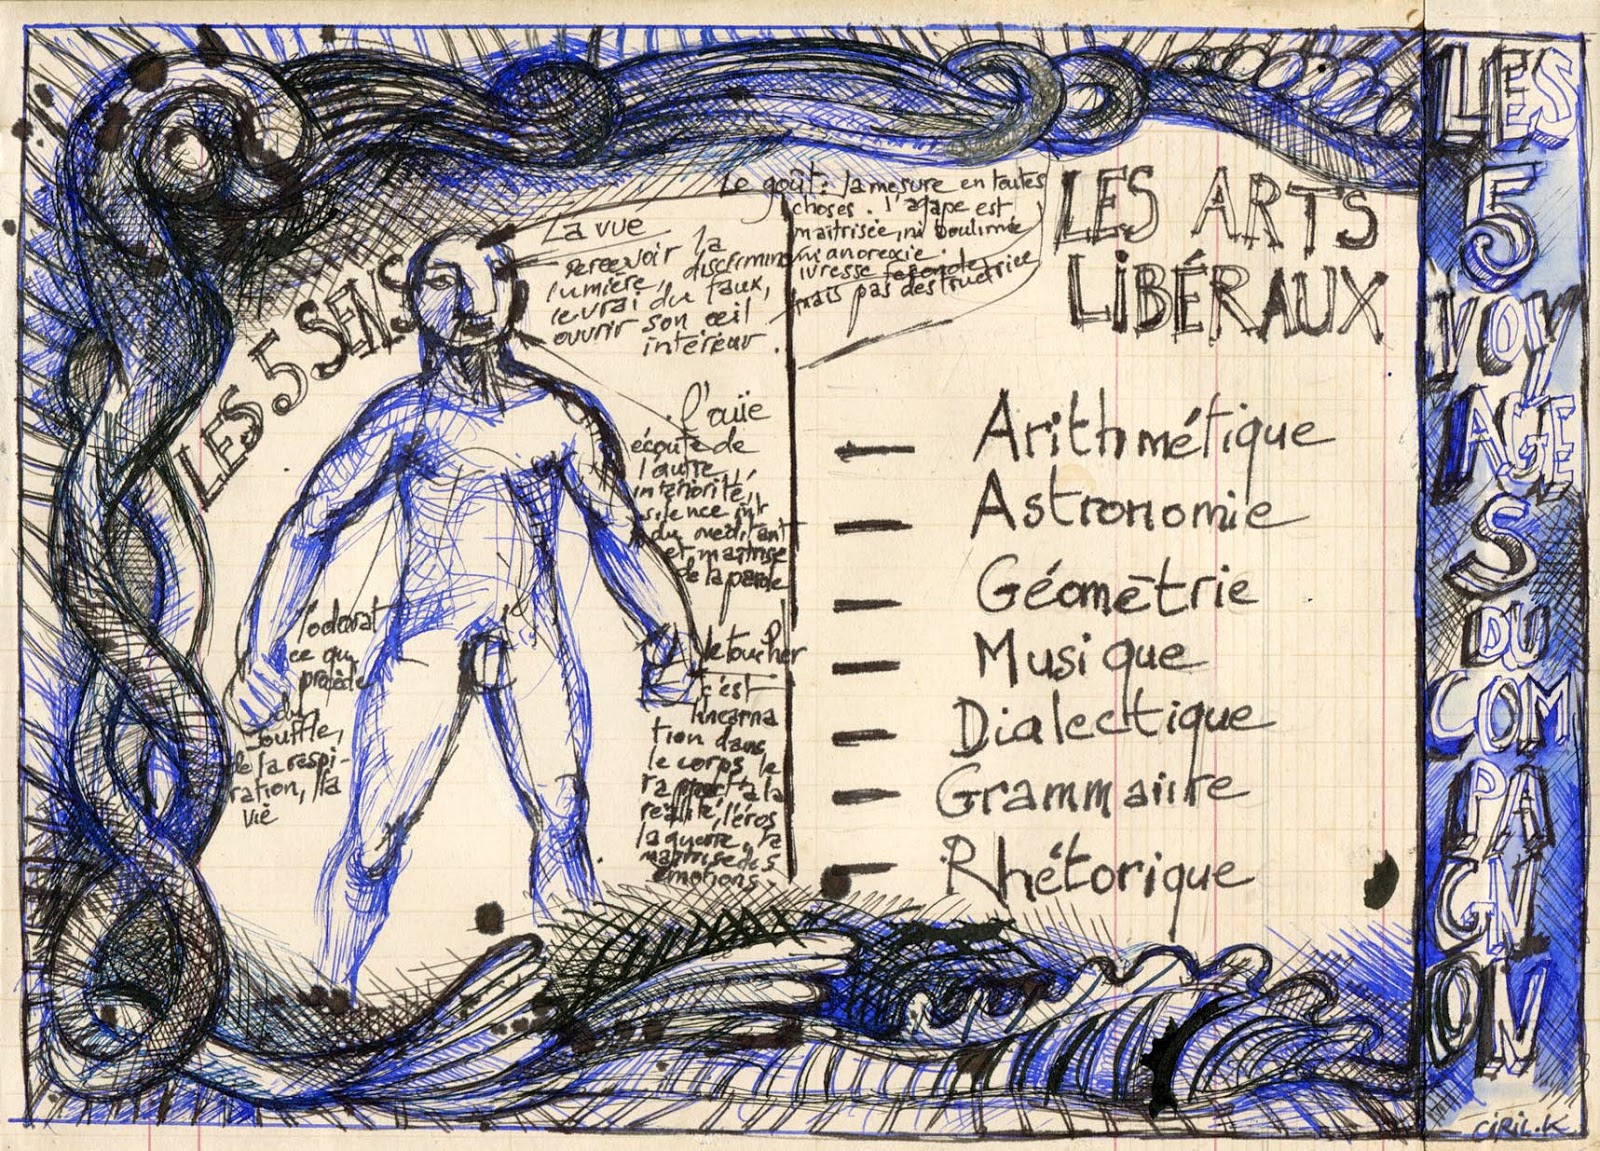 LES 5 SENS
La vue
percevoir la
lumière, discriminer
le vrai du faux,
ouvrir son œil
intérieur.
Le goût: la mesure en toutes
choses. l'agape est
maitrisée, ni boulimie
ni anorexie.
ivresse feconde
mais pas destructrice
l'ouïe
écoute de
l'autre
intériorité,
silence
du méditant
et maitrise
de la parole
l'odorat
ce qui
procède
du
souffle,
de la respi-
ration, la
vie
le toucher
c'est
l'incarna
tion dans
le corps le
rapport à la
réalité, l'éros
la guerre, la
maitrise des
émotions.
LES ARTS
LIBÉRAUX
— Arithmétique
— Astronomie
— Géométrie
— Musique
— Dialectique
— Grammaire
— Rhétorique
LES
5
VOY
AGE
S
DU
COM
PA
GN
ON
CIRIL.K